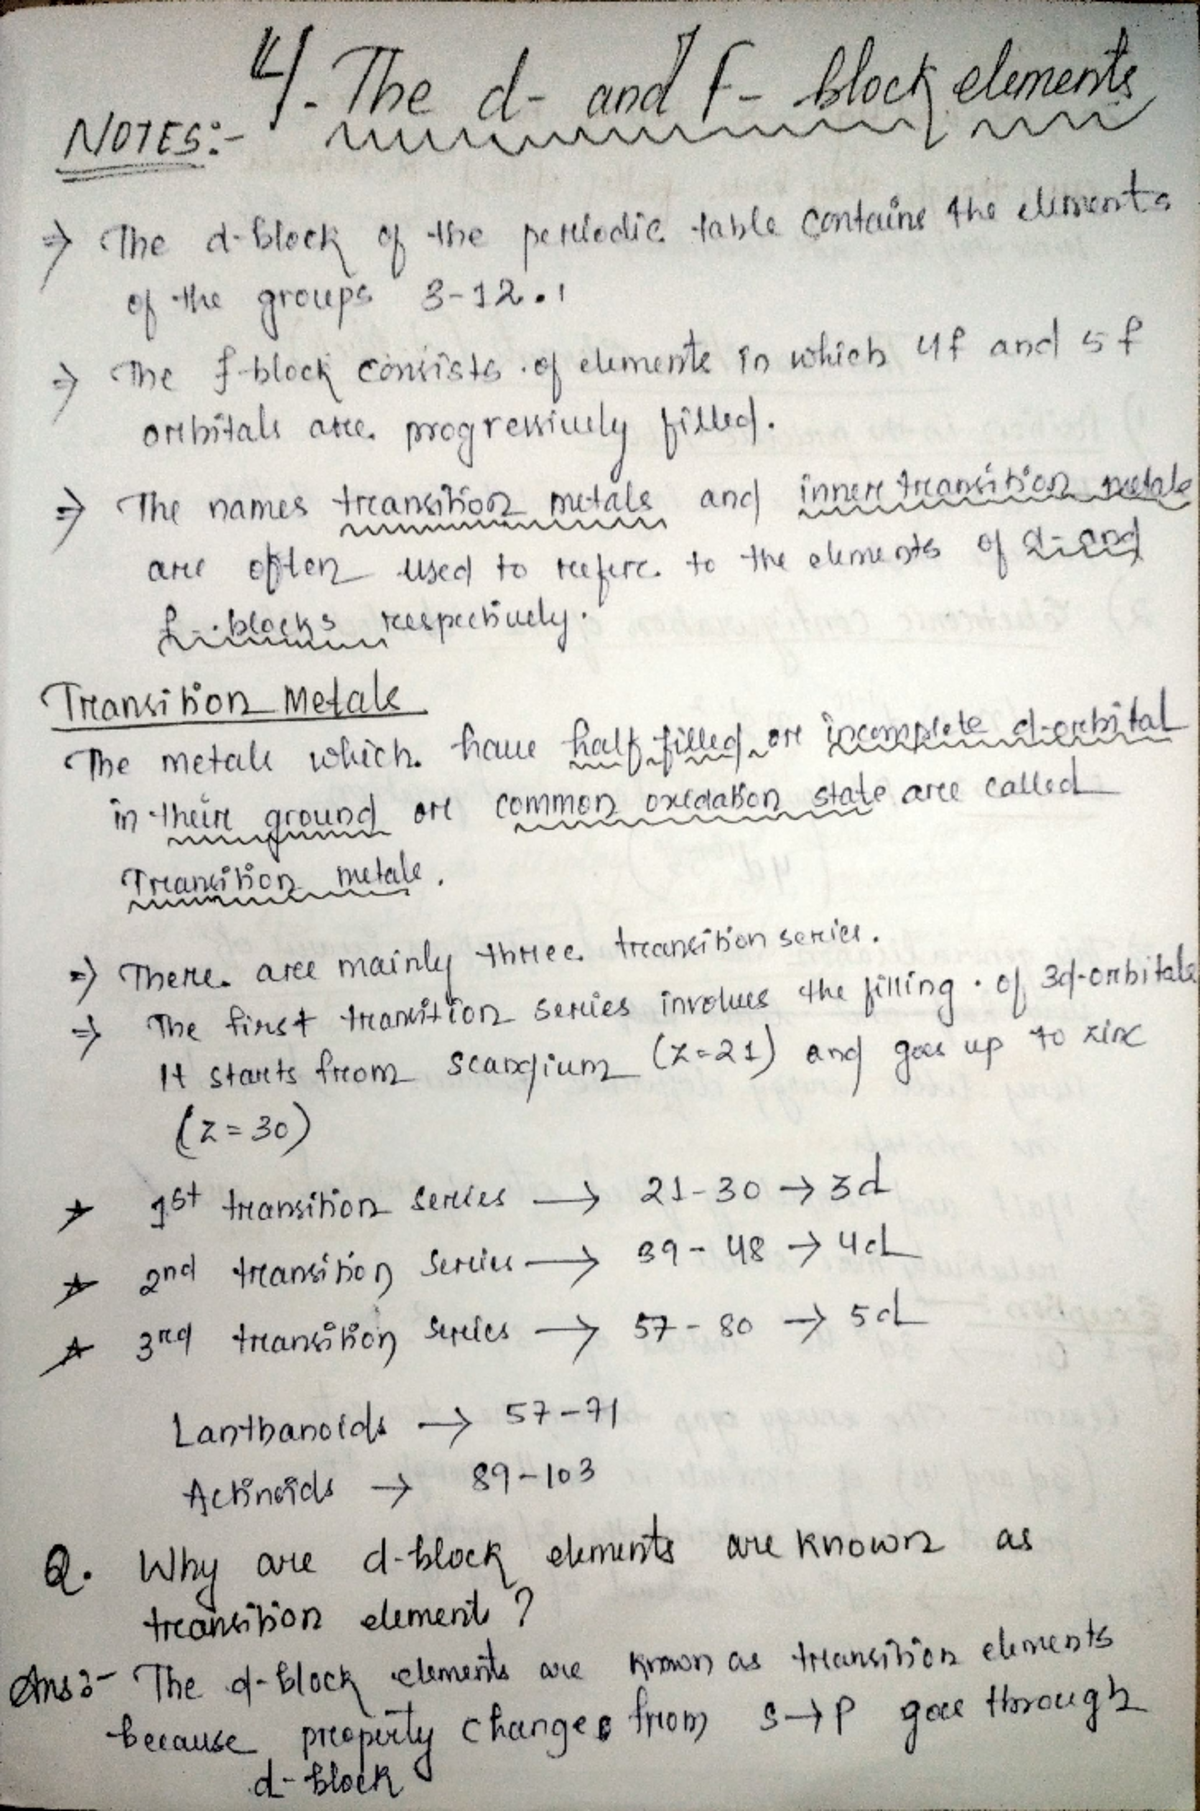 4. The d- and f- block elements
NOTES:-
⇒ The d-block of the periodic table contains the elements
of the groups 3-12.
⇒ The f-block consists of elements in which 4f and 5f
orbitals are progressively filled.
⇒ The names transition metals and inner transition metals
are often used to refer to the elements of d- and
f- blocks respectively.
Transition Metals
The metals which have half filled or incomplete d-orbital
in their ground or common oxidation state are called
Transition metals.
⇒ There are mainly three transition series.
⇒ The first transition series involves the filling of 3d-orbitals
It starts from scandium (z=21) and goes up to zinc
(z=30)
★ 1st transition series → 21-30 → 3d
★ 2nd transition series → 39-48 → 4d
★ 3rd transition series → 57-80 → 5d
Lanthanoids → 57-71
Actinoids → 89-103
Q. Why are d-block elements are known as
transition elements?
Ans:- The d-block elements are known as transition elements
because property changes from s→p goes through
d-block